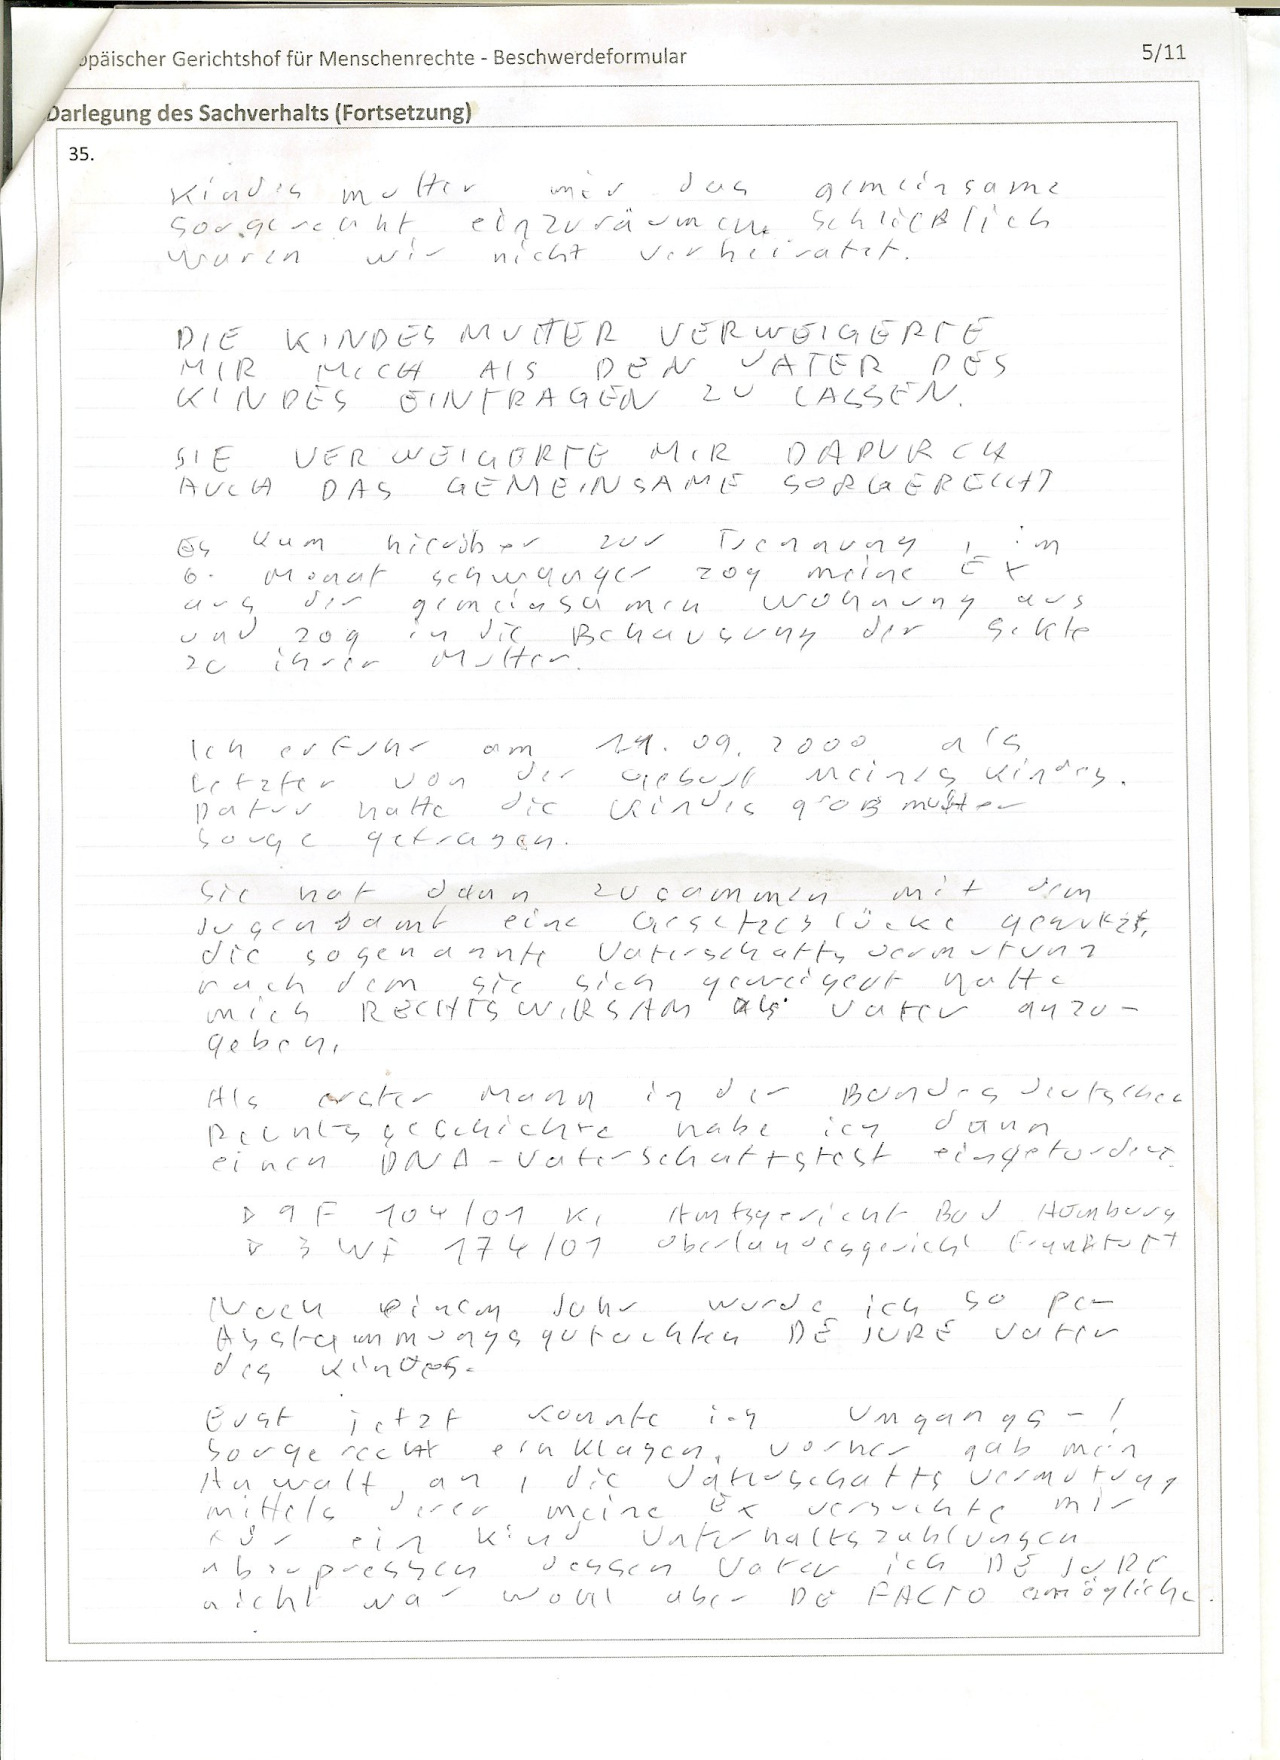 opäischer Gerichtshof für Menschenrechte - Beschwerdeformular 5/11
Darlegung des Sachverhalts (Fortsetzung)
35.
Kindes mutter mir das gemeinsame
Sorgerecht einzuräumen. Schließlich
waren wir nicht verheiratet.
DIE KINDESMUTTER VERWEIGERTE
MIR MICH ALS DEN VATER DES
KINDES EINTRAGEN ZU LASSEN.
SIE VERWEIGERTE MIR DADURCH
AUCH DAS GEMEINSAME SORGERECHT
Es kam hierüber zur Trennung, im
6. Monat schwanger zog meine Ex
aus der gemeinsamen Wohnung aus
und zog in die Behausung der Sekte
zu ihrer Mutter.
Ich erfuhr am 14.09.2000 als
letzter von der Geburt meines Kindes.
Dafür hatte die Kindes großmutter
Sorge getragen.
Sie hat dann zusammen mit dem
Jugendamt eine Gesetzeslücke genutzt,
die sogenannte Vaterschaftsvermutung
nach dem sie sich geweigert hatte
mich RECHTSWIRKSAM als Vater anzu-
geben.
Als erster Mann in der Bundesdeutschen
Rechtsgeschichte habe ich dann
einen DNA-Vaterschaftstest eingefordert.
9 F 104/01 KI Amtsgericht Bad Homburg
3 WF 174/01 Oberlandesgericht Frankfurt
Nach einem Jahr wurde ich so per
Abstammungsgutachten DE JURE Vater
des Kindes.
Erst jetzt konnte ich Umgangs-/
Sorgerecht einklagen, vorher gab mein
Anwalt, an, die Vaterschaftsvermutung
mittels derer meine Ex versuchte mir
für ein Kind Unterhaltszahlungen
abzupressen dessen Vater ich DE JURE
nicht war wohl aber DE FACTO